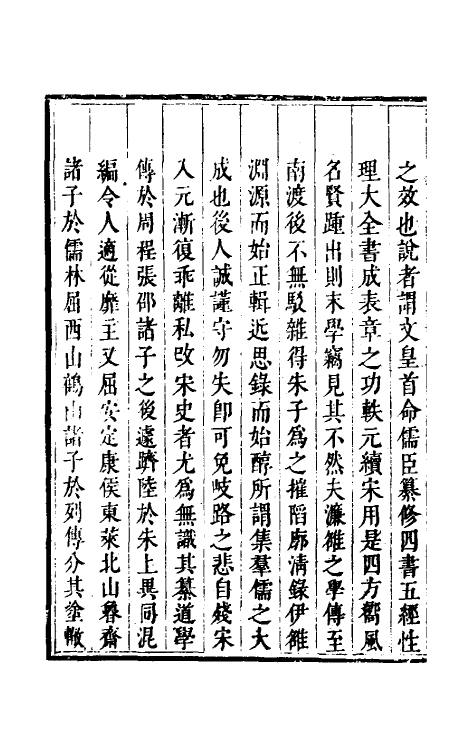 之效也說者謂文皇首命儒臣纂修四書五經性
理大全書成表章之功軼元續宋用是四方嚮風
名賢踵出則末學竊見其不然夫濂雒之學傳至
南渡後不無駁雜得朱子爲之摧陷廓清錄伊雒
淵源而始正輯近思錄而始醇所謂集羣儒之大
成也後人誠謹守勿失卽可免岐路之悲自殘宋
入元漸復乖離私攺宋史者尤爲無識其纂道學
傳於周程張邵諸子之後遠躋陸於朱上異同混
編令人適從靡主又屈安定康侯東萊北山魯齋
諸子於儒林屈西山鶴山諸子於列傳分其塗轍